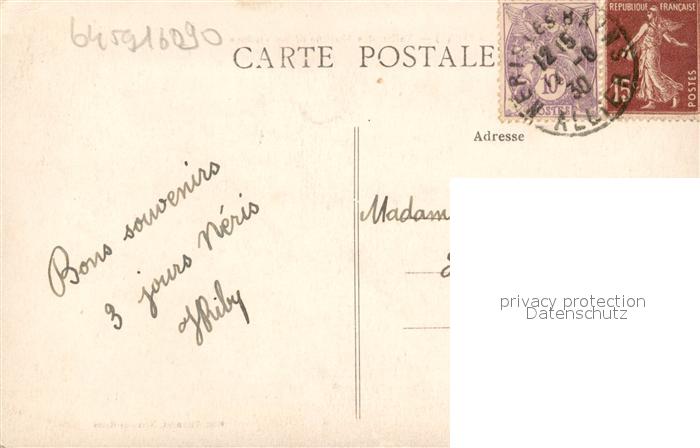 645916290
CARTE POSTALE
NERIS LES BAINS
12 15
12 -8
30
ALLIER
10
POSTES
RÉPUBLIQUE FRANÇAISE
15
POSTES
Adresse
Bons souvenirs
3 jours Néris
Madam
privacy protection
Datenschutz